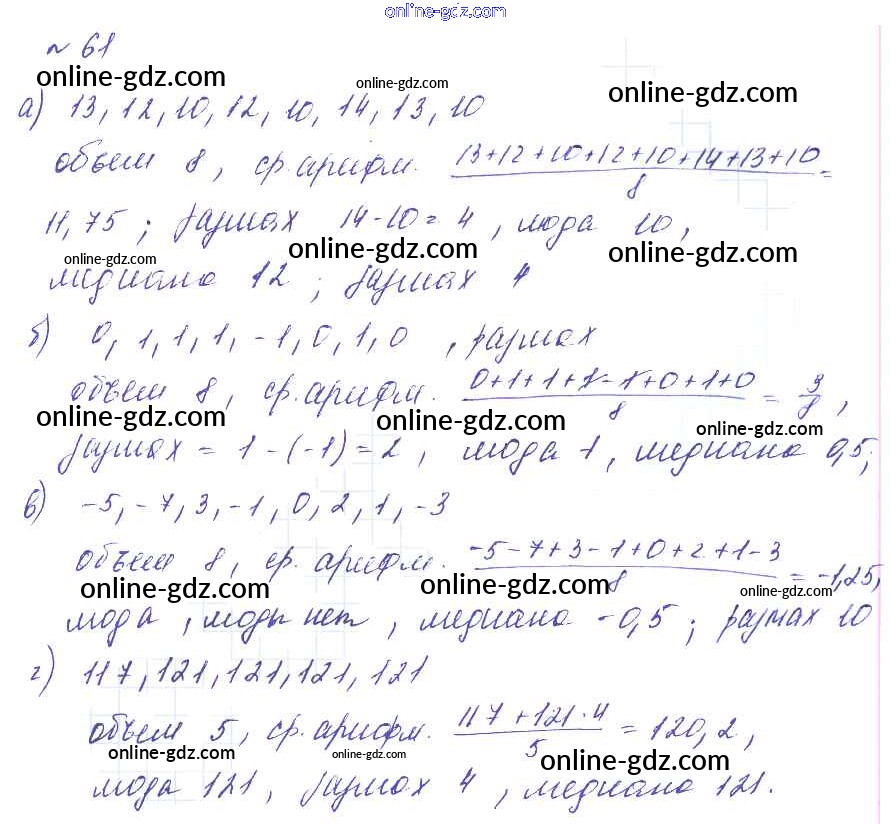 online-gdz.com
№ 61
online-gdz.com online-gdz.com online-gdz.com
а) 13, 12, 10, 12, 10, 14, 13, 10
объем 8, ср. арифм. 13+12+10+12+10+14+13+10 / 8 =
11,75; размах 14-10=4, мода 10,
online-gdz.com online-gdz.com online-gdz.com
медиана 12; размах 4
б) 0, 1, 1, 1, -1, 0, 1, 0, размах
объем 8, ср. арифм. 0+1+1+1-1+0+1+0 / 8 = 3/8,
online-gdz.com online-gdz.com online-gdz.com
размах = 1-(-1)=2, мода 1, медиана 0,5;
в) -5, -7, 3, -1, 0, 2, 1, -3
объем 8, ср. арифм. -5-7+3-1+0+2+1-3 / 8 = -1,25,
online-gdz.com online-gdz.com online-gdz.com
мода, моды нет, медиана -0,5; размах 10
г) 117, 121, 121, 121, 121
объем 5, ср. арифм. 117+121·4 / 5 = 120,2,
online-gdz.com online-gdz.com online-gdz.com
мода 121, размах 4, медиана 121.